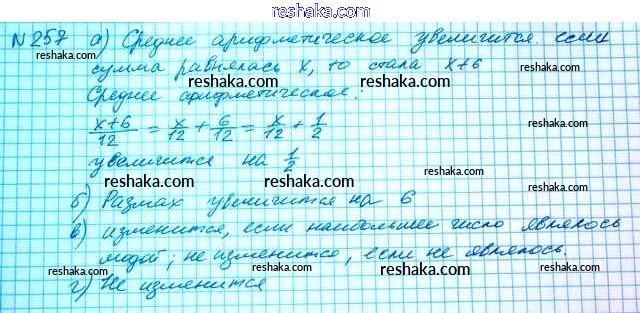 reshaka.com
№257 а) Среднее арифметическое увеличится если
сумма равнялась x, то стала x+6
reshaka.com reshaka.com
Среднее арифметическое:
reshaka.com
(x+6)/12 = x/12 + 6/12 = x/12 + 1/2
reshaka.com reshaka.com
увеличится на 1/2
reshaka.com reshaka.com
б) Размах увеличится на 6
reshaka.com reshaka.com
в) изменится, если наибольшее число являлось
reshaka.com
модой; не изменится, если не являлось.
reshaka.com reshaka.com
г) Не изменится
reshaka.com
reshaka.com